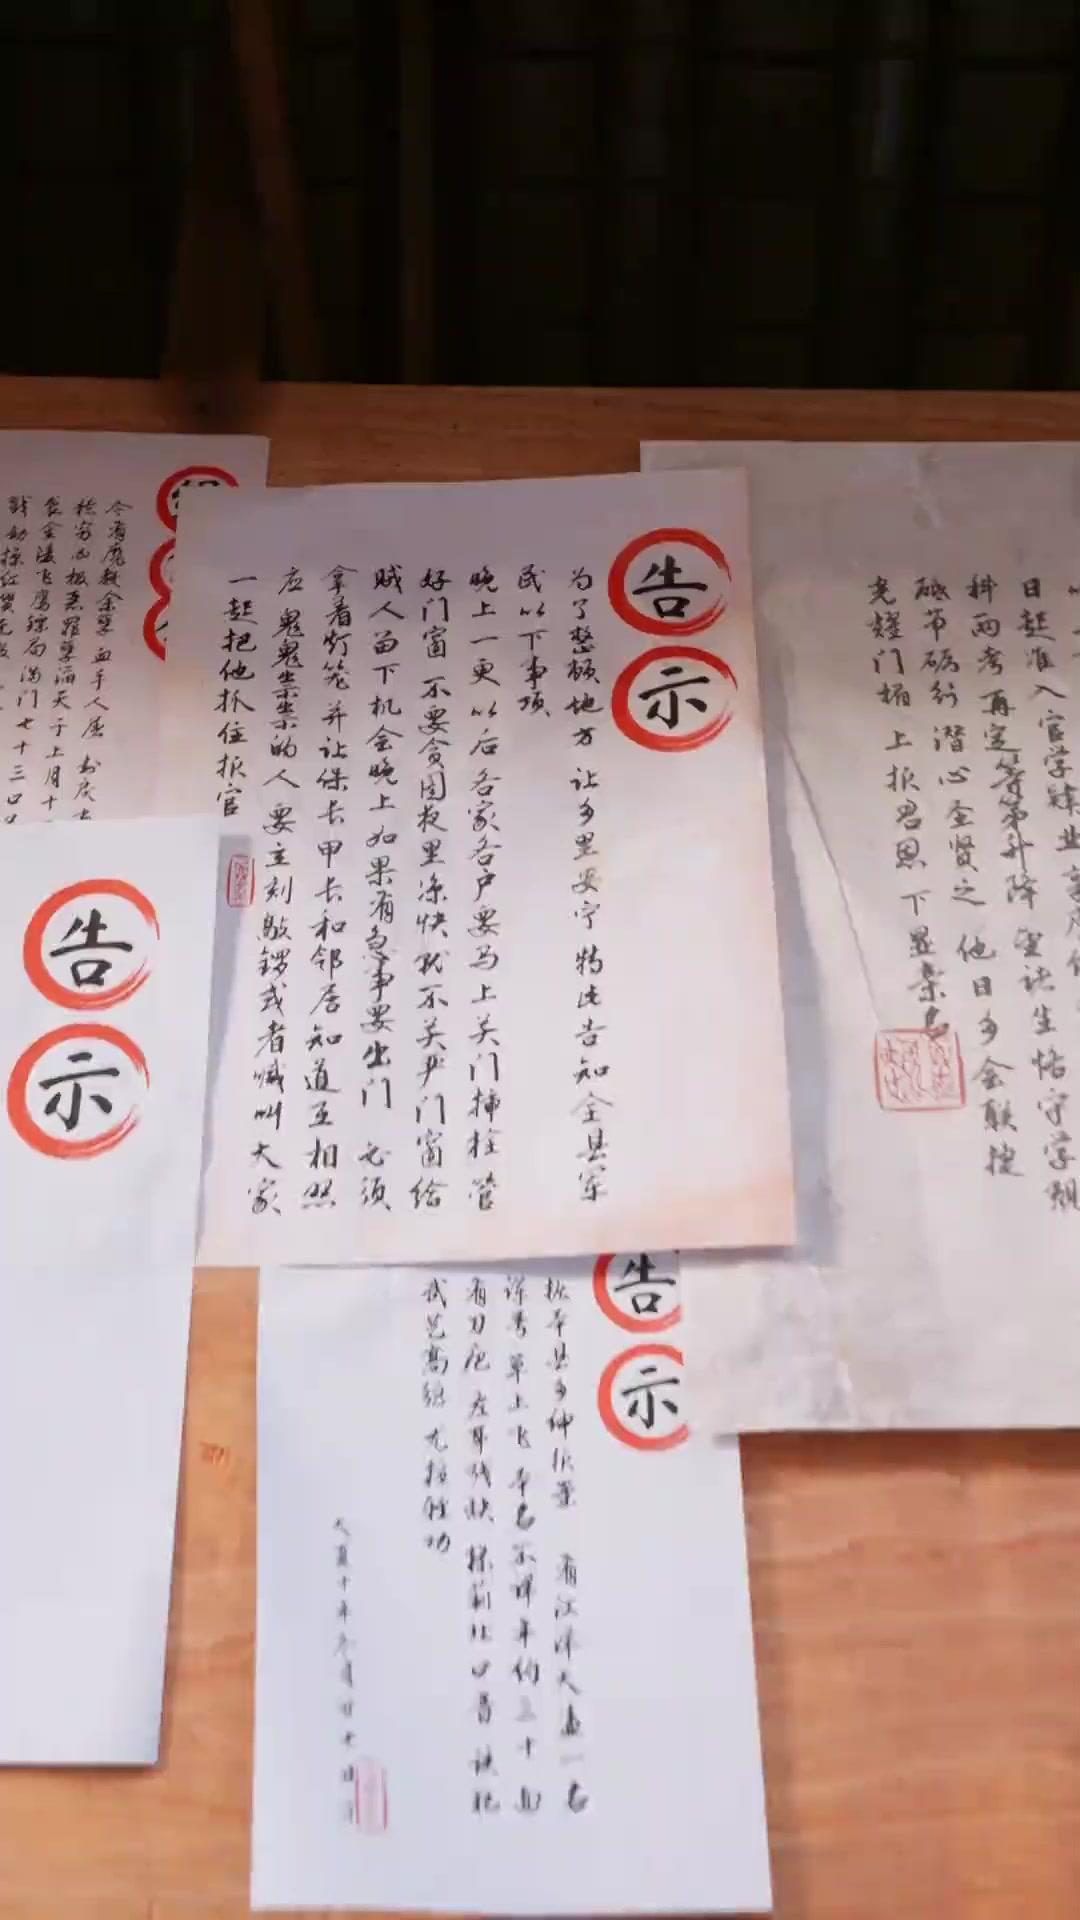 告示
为了整顿地方 让乡里安宁特此告知全县军
民以下事项
晚上一更以后各家各户要马上关门插栓 管
好门窗 不要贪图夜里凉快就不关严门窗给
贼人留下机会晚上如果有急事要出门 必须
拿着灯笼 并让保长甲长和邻居知道互相照
应 鬼鬼祟祟的人 要立刻敲锣或者喊叫大家
一起把他抓住报官
日起准入官学肄业
科两考再定等第升降 望诸生恪守学规
砥节砺行 潜心圣贤之 他日乡会联捷
光耀门楣 上报君恩 下显亲名
今有魔教余孽血手人屠
极恶罪孽滔天于上月十
金陵飞鹰镖局满门七十三口
告示
告示
据本县乡绅报案 有江洋大盗一名
诨号草上飞 本名不详年约三十面
有刀疤 左耳残缺 操荆北口音 该犯
武艺高强 尤擅轻功